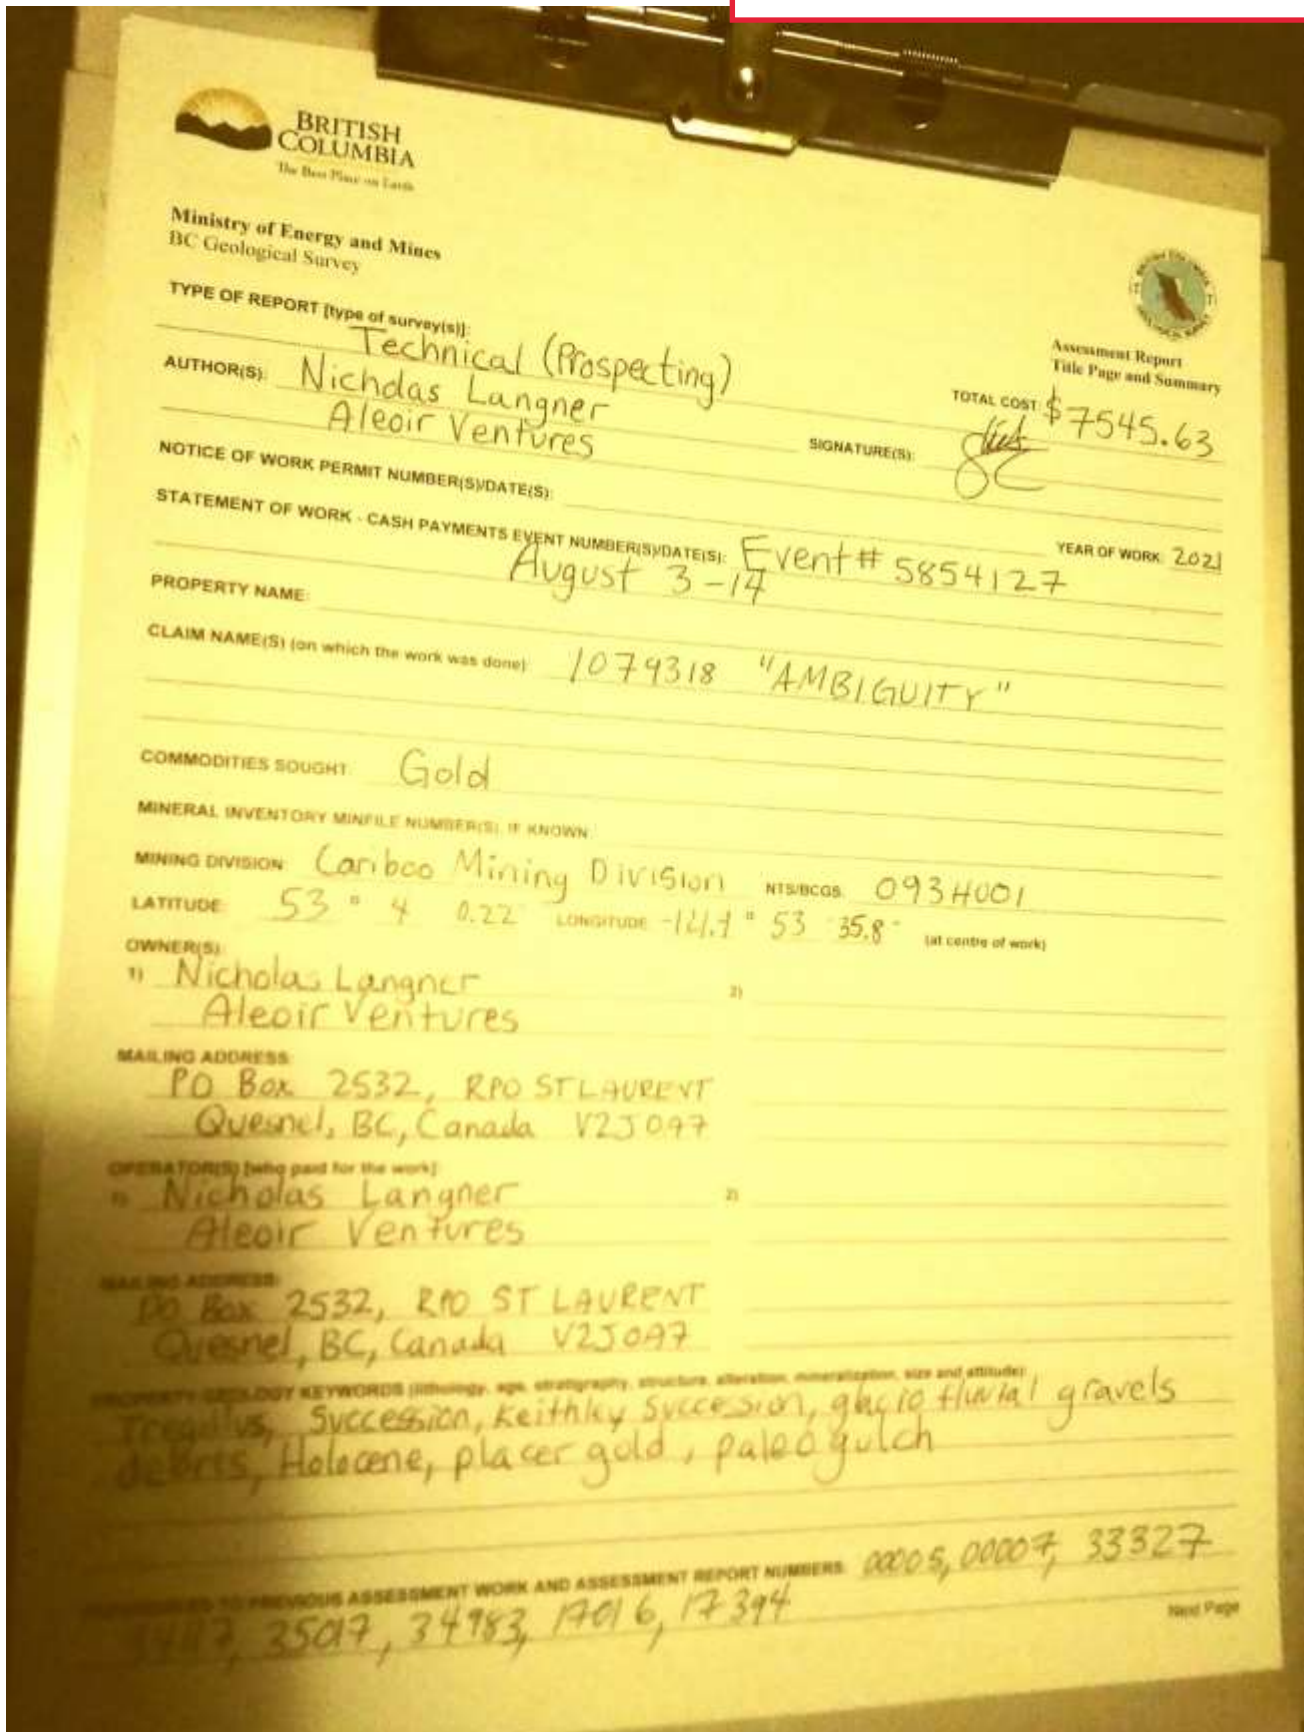 BRITISH
COLUMBIA
The Best Place on Earth
Ministry of Energy and Mines
BC Geological Survey
Assessment Report
Title Page and Summary
TYPE OF REPORT [type of survey(s)]:
Technical (Prospecting)
TOTAL COST: $7545.63
AUTHOR(S): Nicholas Langner
Aleoir Ventures
SIGNATURE(S):
NOTICE OF WORK PERMIT NUMBER(S)/DATE(S):
YEAR OF WORK: 2021
STATEMENT OF WORK - CASH PAYMENTS EVENT NUMBER(S)/DATE(S): Event# 5854127
August 3-14
PROPERTY NAME:
CLAIM NAME(S) (on which the work was done) 1079318 "AMBIGUITY"
COMMODITIES SOUGHT: Gold
MINERAL INVENTORY MINFILE NUMBER(S), IF KNOWN:
MINING DIVISION: Cariboo Mining Division NTS/BCGS: 093H001
LATITUDE: 53 ° 4 0.22 LONGITUDE ° 53 35.8 " (at centre of work)
OWNER(S):
1) Nicholas Langner 2)
Aleoir Ventures
MAILING ADDRESS:
PO Box 2532, RPO ST LAURENT
Quesnel, BC, Canada V2J0A7
OPERATOR(S) [who paid for the work]:
1) Nicholas Langner 2)
Aleoir Ventures
MAILING ADDRESS:
PO Box 2532, RPO ST LAURENT
Quesnel, BC, Canada V2J0A7
PROPERTY GEOLOGY KEYWORDS (lithology, age, stratigraphy, structure, alteration, mineralization, size and attitude):
Tregillus, Succession, Keithley Succesion, glacio fluvial gravels
debris, Holocene, placer gold, paleo gulch
REFERENCES TO PREVIOUS ASSESSMENT WORK AND ASSESSMENT REPORT NUMBERS: 00005, 00007, 33327
35017, 34983, 17016, 17394
Next Page